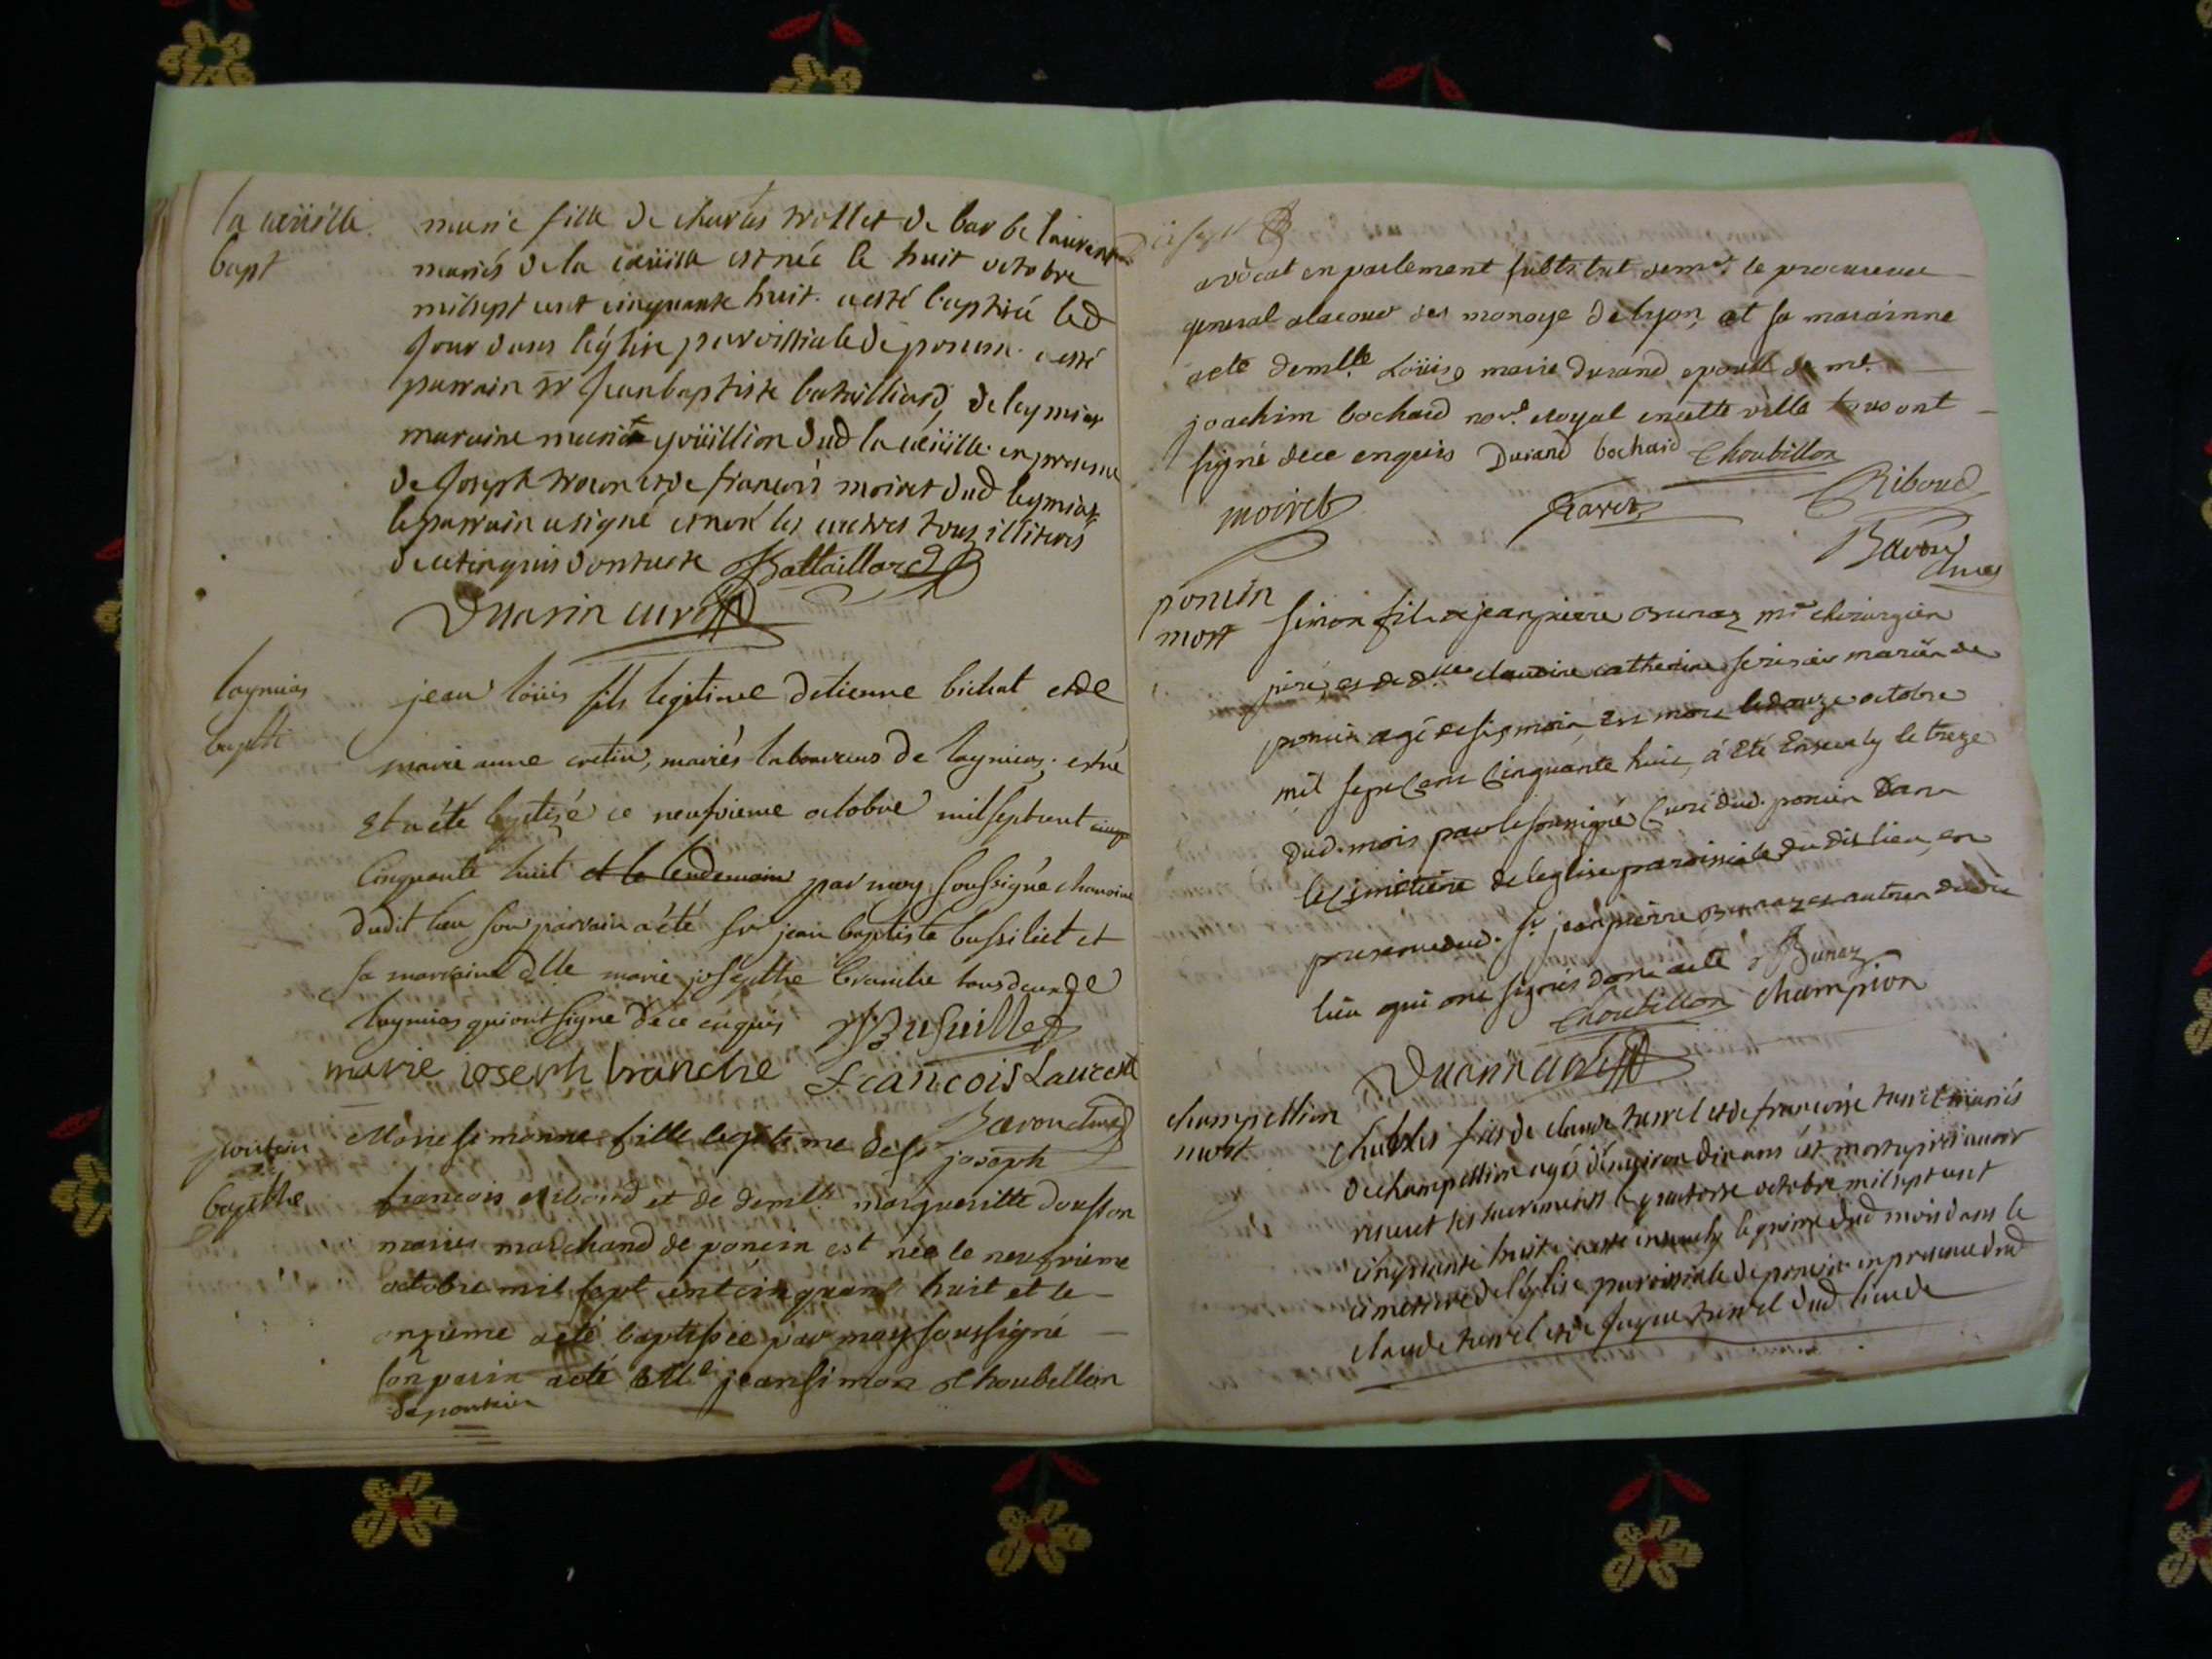 la cüeille
bapt
marie fille de charles trollet de barbe laurent
mariés de la cüeille est née le huit octobre
mil sept cent cinquante huit a esté baptisée led
jour dans l'église parroissiale de poncin a esté
parrain sr jean baptiste bataillard, de leymiat
maraine mariée goüillion dud la cüeille en presence
de joseph et de francois moiret dud leymiat
le parrain a signé et non les autres tous illiteres
de ce enquis dont acte Battaillard
Duarin curé
leymias
baptte
jean loüis fils legitime detienne bichat et de
marie anne cretin, mariés laboureurs de leymias, est né
et a été baptizé ce neufvieme octobre mil sept cent cinq
Cinquante huit et le lendemain par moy soussigné chanoine
dudit lieu son parrain a été sr jean baptiste bussiliet et
sa marraine dlle marie josephte branche tous deux de
leymias qui ont signé de ce enquis Busuillet
marie joseph branche francois Laurent
Bavoud
poncin
baptthe
Marie simonne fille legitime de sr joseph
francois riboud et de demlle margueritte dousson
mariés marchand de poncin est née le neufvieme
octobre mil sept cent cinquante huit et le
onzieme a eté baptisée par moy soussigné
son parin a eté Me jean simon Choubillon
de poncin
avocat en parlement substitut de mr le procureur
general a la cour des monoye de lyon, et sa marainne
a eté demlle Loüise marie durand epouse de mr
joachim bochard nore royal en cette ville tous ont
signé de ce enquis Durand bochard Choubillon
moiret Ravet Riboud
Bavoud
poncin
mort
simon fils de jean pierre Bunaz mre chirurgien
juré, et de dlle claudine catherine mariés de
poncin agé de six mois est mort le douze octobre
mil sept cent Cinquante huit, á Eté Ensevely le treze
dud. mois par le soussigné Curé dud. poncin Dans
le Cimetiere de leglise paroissiale du dit lieu, en
presence dud. sr jean pierre Bunaz et autres dudit
lieu qui ont signés dont acte Bunaz
Choubillon champion
Duarin curé
champellion
mort
Charles fils de claude turrel et de francoise turrel mariés
de champellion agés d'environ dix ans est mort apres avoir
receut les sacrements le quatorze octobre mil sept cent
cinquante huit a esté ensevely le quinze dud mois dans le
cimettiere de l'église parroissiale de poncin en presence dud
claude turrel et de jaque turrel dud lieu de